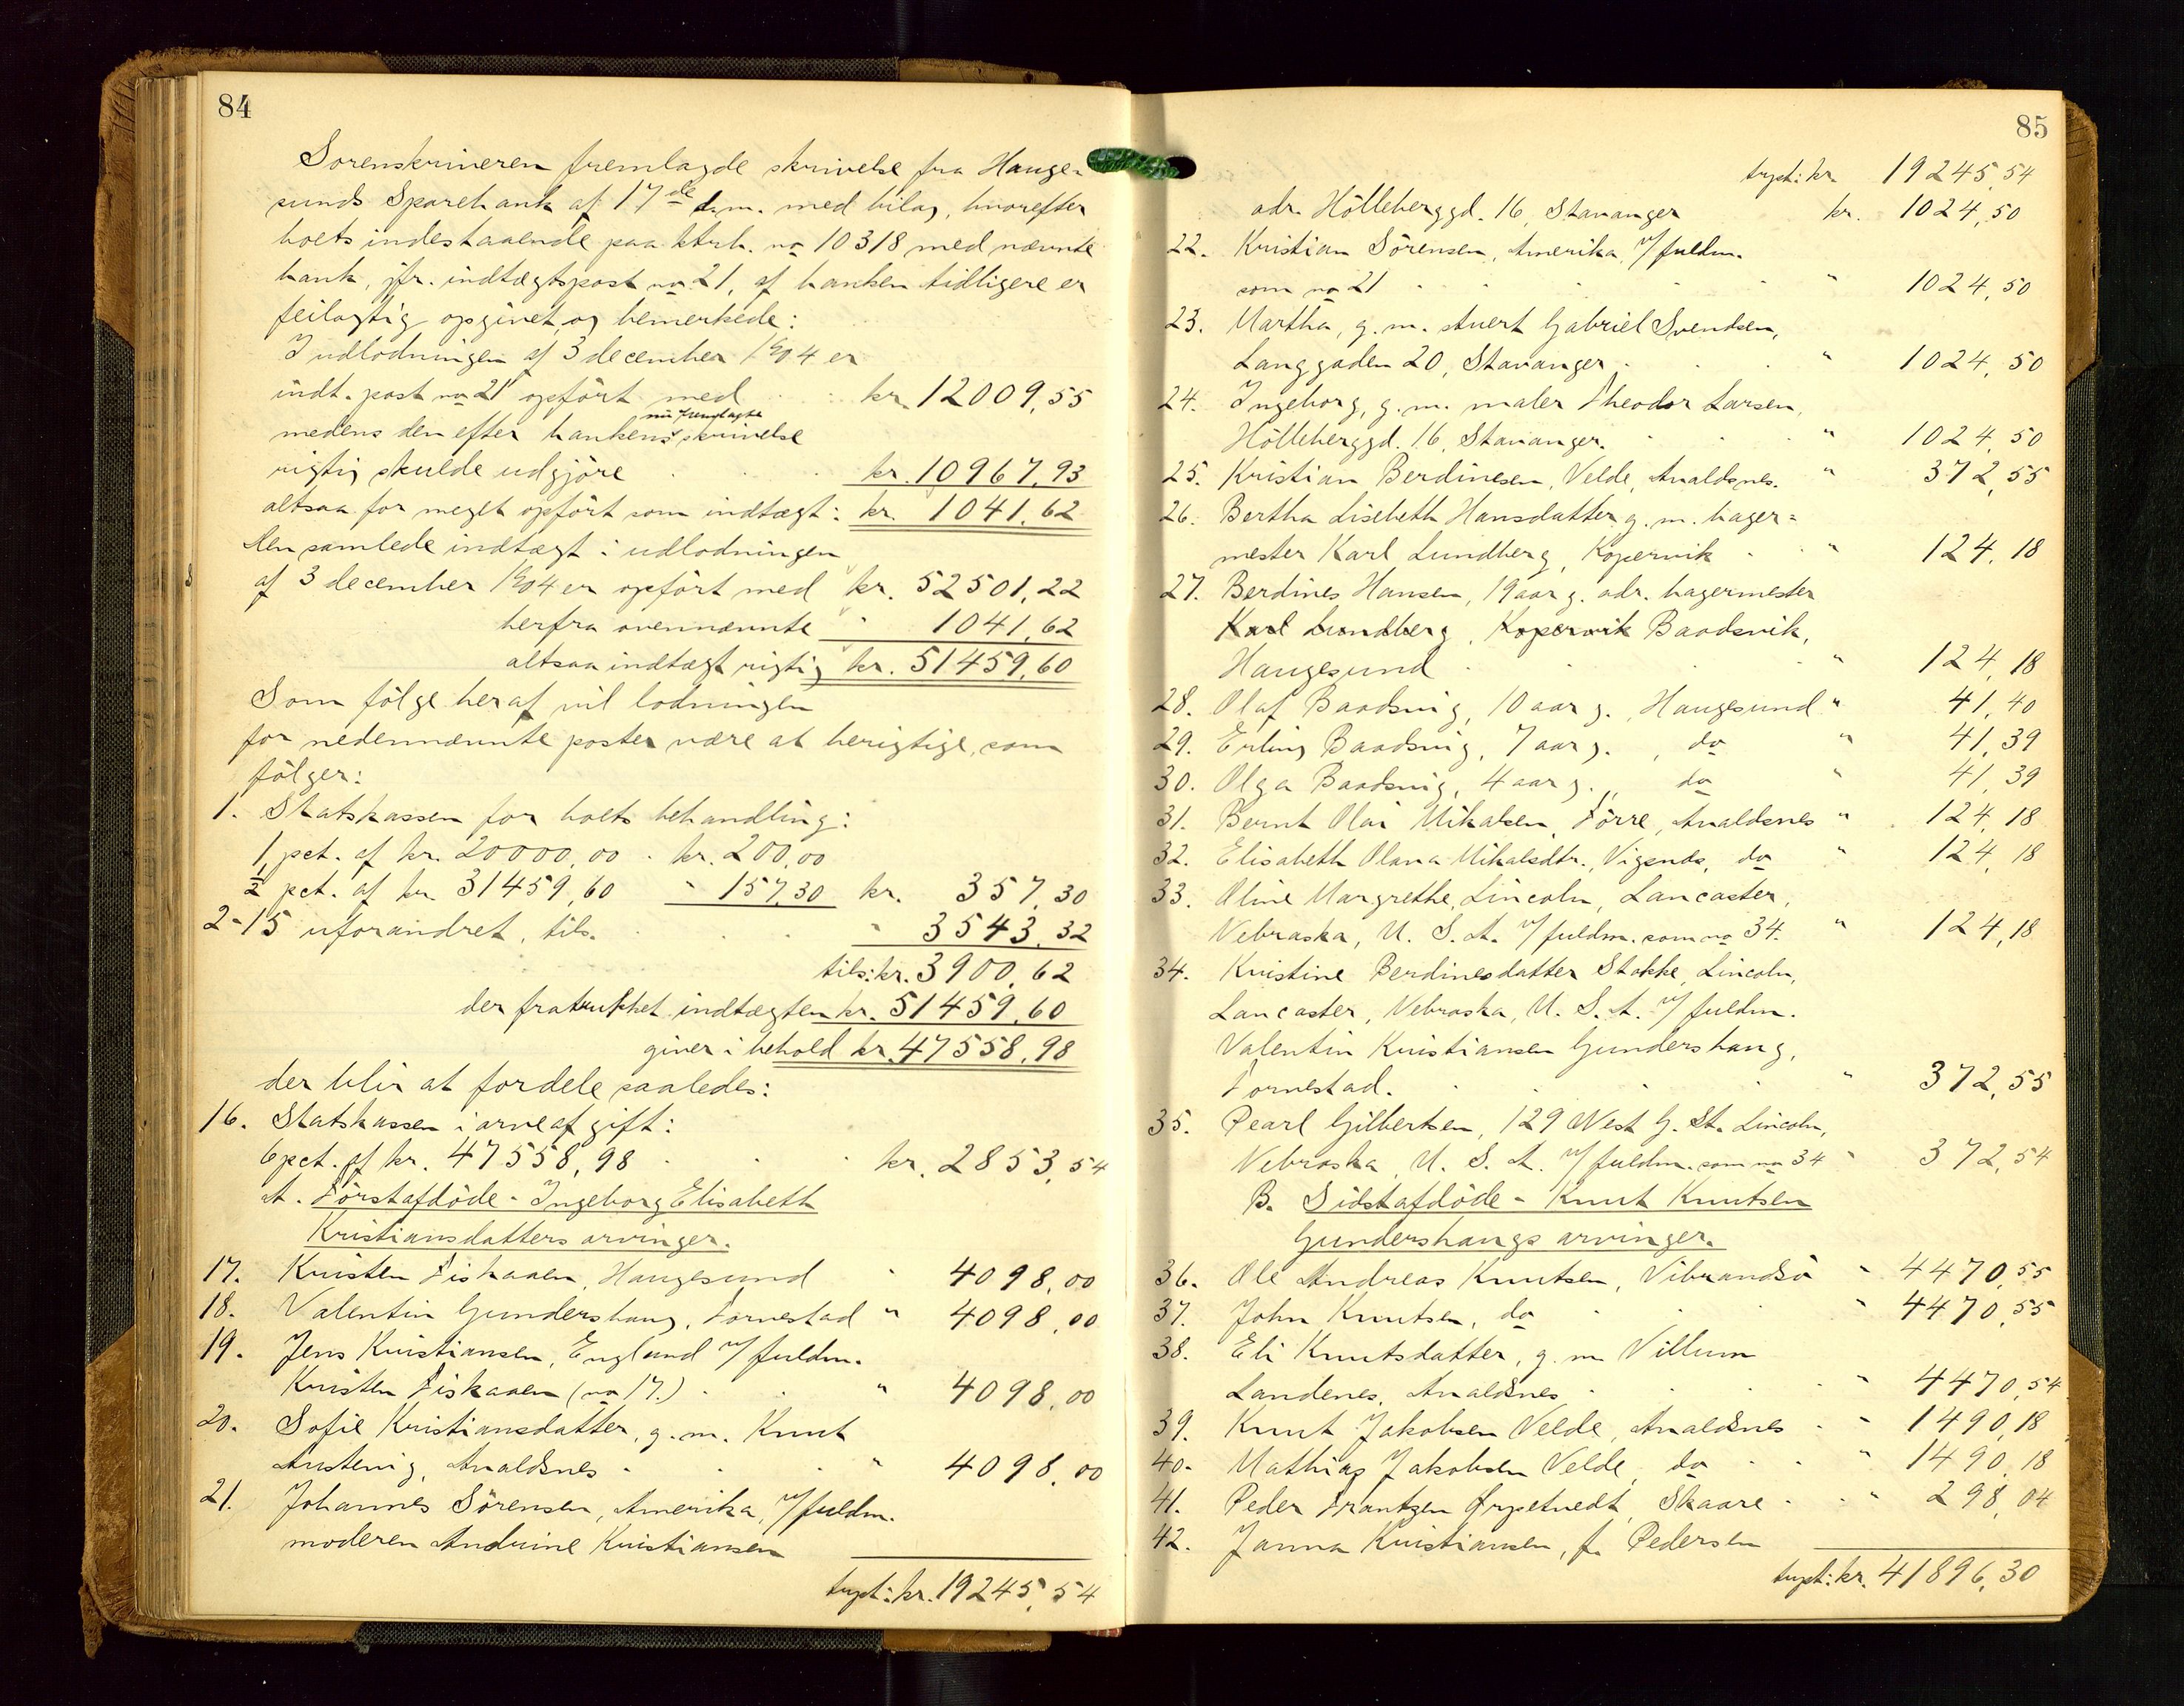 84
Sorenskriveren fremlagde skrivelse fra Hauge-
sunds Sparebank af 17de d.m. med bilag, hvorefter
boets indestaaende paa ktrb. no 10318 med nævnte
bank, jfr. indtægtspost no 21, af banken tidligere er
feilagtig opgivet, og bemerkede:
I udlodningen af 3 december 1904 er
indt. post no 21 opført med kr. 12009,55
medens den efter bankens nu fremlagte skrivelse
rigtig skulde udgjøre kr. 10967,93
altsaa for meget opført som indtægt: kr. 1041,62
Den samlede indtægt i udlodningen
af 3 december 1904 er opført med kr. 52501,22
herfra ovennævnte " 1041,62
altsaa indtægt rigtig kr. 51459,60
Som følge heraf vil lodningen
for nedennævnte poster være at berigtige, som
følger:
1. Statskassen for boets behandling:
1 pct. af kr. 20000,00 . kr. 200,00
1/2 pct. af kr. 31459,60 " 157,30 kr. 357,30
2-15 uforandret, tils. " 3543,32
tils: kr. 3900,62
der fratrukket indtægten kr. 51459,60
giver i behold kr. 47558,98
der blir at fordele saaledes:
16. Statskassen i arveafgift:
6 pct. af kr. 47558,98 kr. 2853,54
A. Førstafdøde - Ingeborg Elisabeth
Kristiansdatters arvinger.
17. Kristen Fiskaaen, Haugesund " 4098,00
18. Valentin Gundershaug, Førnestad " 4098,00
19. Jens Kristiansen, England v/ fuldm.
Kristen Fiskaaen (no 17.) " 4098,00
20. Sofie Kristiansdatter, g.m. Knut
Austevig, Avaldsnes " 4098,00
21. Johannes Sørensen, Amerika, v/ fuldm.
moderen Andrine Kristiansen
trspt: kr. 19245,54
85
trspt: kr. 19245,54
adr. Hølleberggd. 16, Stavanger kr. 1024,50
22. Kristian Sørensen, Amerika, v/ fuldm.
som no 21 " 1024,50
23. Martha, g.m. stuert Gabriel Svendsen,
Langgaden 20, Stavanger " 1024,50
24. Ingeborg, g.m. maler Theodor Larsen,
Hølleberggd. 16, Stavanger. " 1024,50
25. Kristian Berdinesen, Velde, Avaldsnes. " 372,55
26. Bertha Lisebeth Hansdatter g.m. bager=
mester Karl Lundberg, Kopervik " 124,18
27. Berdines Hansen, 19 aar g. adr. bagermester
Karl Lundberg, Kopervik Baadsvik,
Haugesund " 124,18
28. Olaf Baadsvig, 10 aar g., Haugesund " 41,40
29. Erling Baadsvig, 7 aar g., do " 41,39
30. Olga Baadsvig, 4 aar g., do " 41,39
31. Bernt Olai Mikalsen, Førre, Avaldsnes " 124,18
32. Elisabeth Olava Mikalsdtr., Vigsnds, do " 124,18
33. Oline Margrethe, Lincoln, Lancaster,
Nebraska, U. S. A. v/ fuldm. som no 34. " 124,18
34. Kristine Berdinesdatter Stakke, Lincoln,
Lancaster, Nebraska, U. S. A. v/ fuldm.
Valentin Kristiansen Gundershaug,
Førnestad. " 372,55
35. Pearl Gilbertsen, 129 West G. St. Lincoln,
Nebraska, U. S. A. v/ fuldm. som no 34 " 372,54
B. Sidstafdøde - Knut Knutsen
Gundershaugs arvinger.
36. Ole Andreas Knutsen, Vibrandsø " 4470,55
37. John Knutsen, do " 4470,55
38. Eli Knutsdatter, g.m. Villum
Landenes, Avaldsnes " 4470,54
39. Knut Jakobsen Velde, Avaldsnes " 1490,18
40. Mathias Jakobsen Velde, do " 1490,18
41. Peder Frantzen Ørpetvedt, Skaare " 298,04
42. Janna Kristiansen, f. Pedersen
trspt: kr. 41896,30